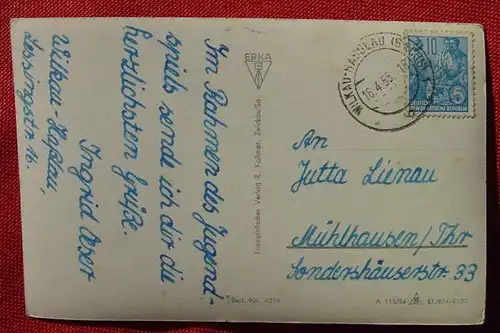 Im Rahmen des Jugend-
spiels send ich dir die
herzlichsten Grüße.
Ingrid
Wilkau-Haßlau,
Lessingstr. 16.
ERKA
Fotografischer Verlag R. Kallmer, Zwickau/Sa.
Best.-Nr. 4219
WILKAU-HASSLAU
16.4.55
10
DEUTSCHE DEMOKRATISCHE REPUBLIK
An
Jutta Lienau
Mühlhausen/Thr
Sondershäuserstr. 33
A 119/54